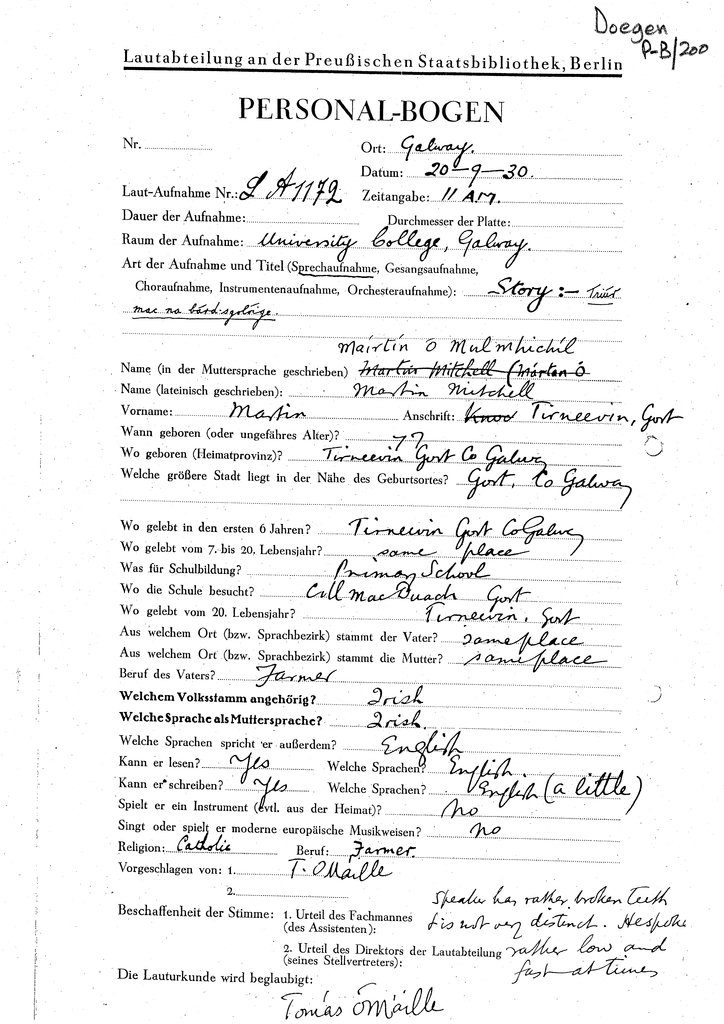 Doegen
P-B/200
Lautabteilung an der Preußischen Staatsbibliothek, Berlin
PERSONAL-BOGEN
Nr.
Ort: Galway.
Datum: 20-9-30.
Laut-Aufnahme Nr.: LA 1172 Zeitangabe: 11 AM.
Dauer der Aufnahme: Durchmesser der Platte:
Raum der Aufnahme: University College, Galway.
Art der Aufnahme und Titel (Sprechaufnahme, Gesangsaufnahme,
Choraufnahme, Instrumentenaufnahme, Orchesteraufnahme): Story:- Triúr
mac na bárd-sgolóige.
Máirtín Ó Mulmhichíl
Name (in der Muttersprache geschrieben) Martin Mitchell (Mártan Ó
Name (lateinisch geschrieben): Martin Mitchell
Vorname: Martin Anschrift: Tirneevin, Gort
Wann geboren (oder ungefähres Alter)? 77
Wo geboren (Heimatprovinz)? Tirneevin Gort Co Galway
Welche größere Stadt liegt in der Nähe des Geburtsortes? Gort, Co Galway
Wo gelebt in den ersten 6 Jahren? Tirneevin Gort Co Galway
Wo gelebt vom 7. bis 20. Lebensjahr? same place
Was für Schulbildung? Primary School
Wo die Schule besucht? Cill Mac Duach Gort
Wo gelebt vom 20. Lebensjahr? Tirneevin, Gort
Aus welchem Ort (bzw. Sprachbezirk) stammt der Vater? same place
Aus welchem Ort (bzw. Sprachbezirk) stammt die Mutter? same place
Beruf des Vaters? Farmer
Welchem Volksstamm angehörig? Irish
Welche Sprache als Muttersprache? Irish.
Welche Sprachen spricht er außerdem? English
Kann er lesen? Yes Welche Sprachen? English.
Kann er schreiben? Yes Welche Sprachen? English (a little)
Spielt er ein Instrument (evtl. aus der Heimat)? No
Singt oder spielt er moderne europäische Musikweisen? No
Religion: Catholic Beruf: Farmer.
Vorgeschlagen von: 1. T. OMaille
2.
Beschaffenheit der Stimme: 1. Urteil des Fachmannes
(des Assistenten):
speaker has rather broken teeth
& is not very distinct. He spoke
2. Urteil des Direktors der Lautabteilung
(seines Stellvertreters):
rather low and
fast at times
Die Lauturkunde wird beglaubigt:
Tomás Ó Máille